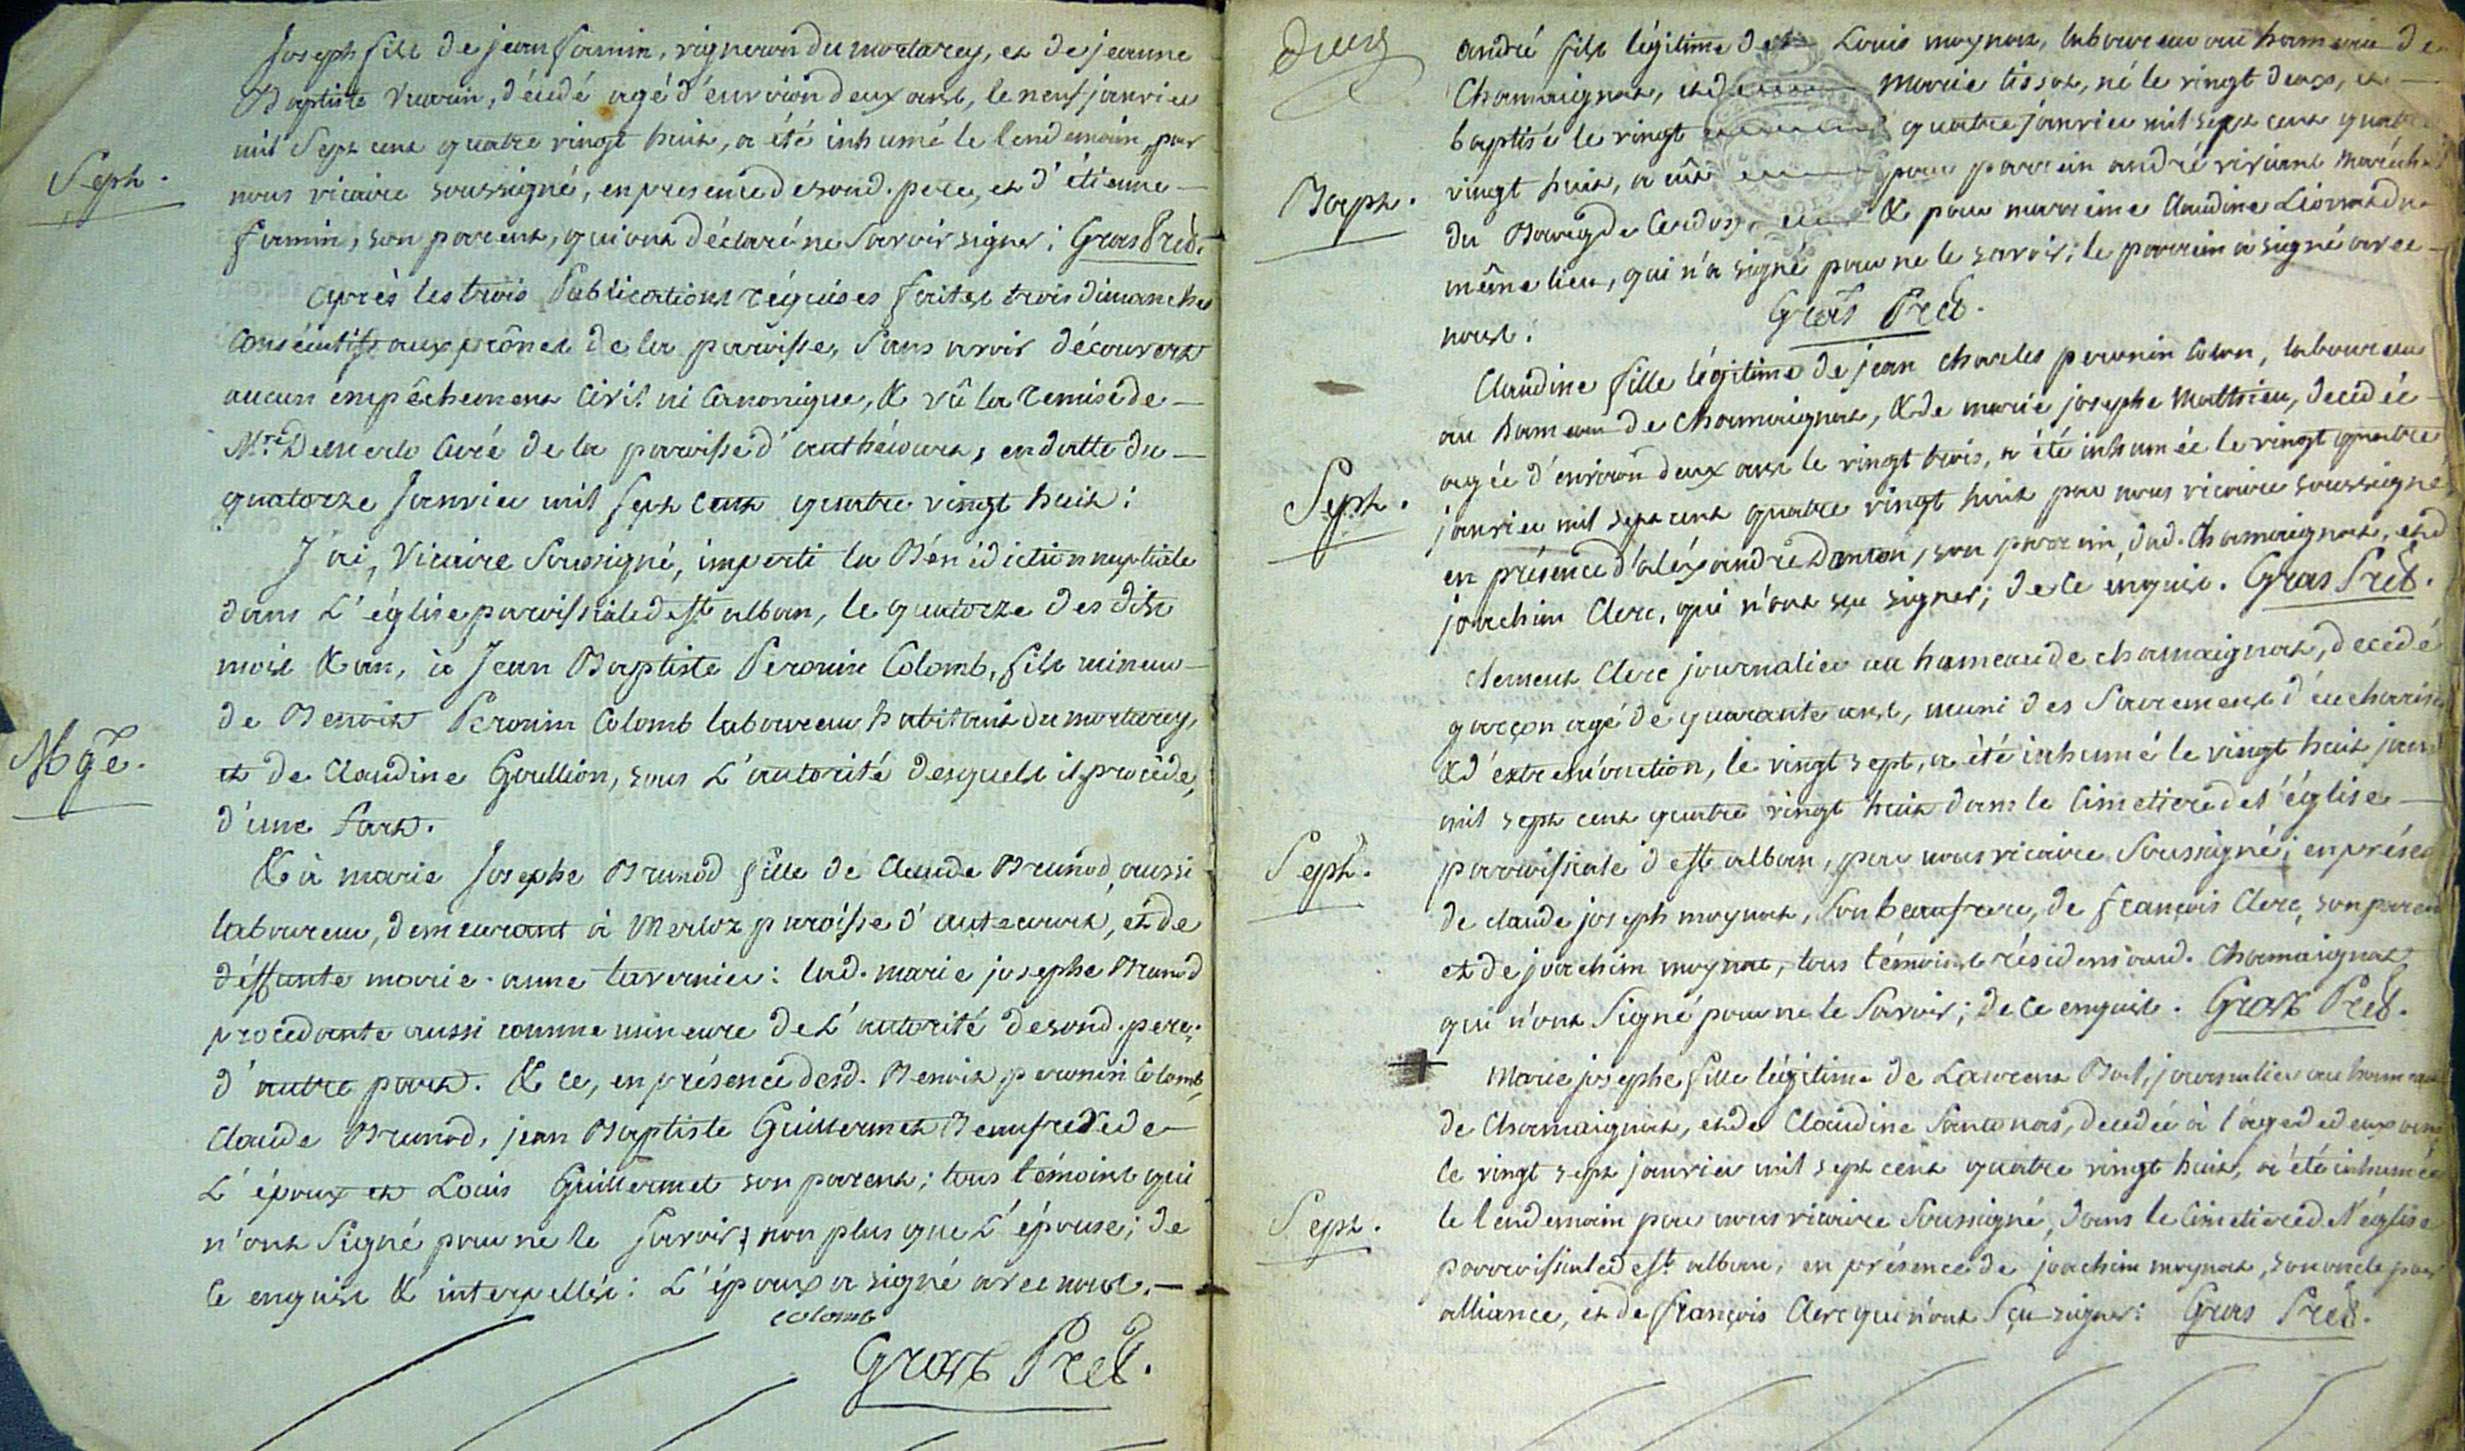 Joseph fils de jean famin, vigneron du mortarey, et de jeanne
Baptiste vuarin, décédé agé d'environ deux ans, le neuf janvier
mil Sept cent quatre vingt huit, a été inhumé le lendemain, par
Seph.
nous vicaire soussigné, en presence de sond. pere, et d'étienne
famin, son parent, qui ont déclaré ne Savoir signer: Gras Preb.
après les trois Publications requises faites trois dimanches
Consécutifs aux prônes de la paroisse, Sans avoir découvert
aucun empêchement Civil ni Canonique, & vû la remise de
Mre. Demerlo Curé de la paroisse d'authécourt, en datte du
quatorze Janvier mil Sept Cent quatre vingt huit:
J'ai, Vicaire Soussigné, imparti la Bénédiction nuptiale
dans L'église paroissiale de St. alban, le quatorze des dits
mois & an, à Jean Baptiste Peronin Colomb, fils mineur
de Benoit Peronin Colomb laboureur habitant du mortarey,
Mge.
et de Claudine Goullion, sous L'autorité desquels il procède,
d'une Part.
& à marie Josephe Brunod fille de Claude Brunod, aussi
laboureur, demeurant à Merloz paroisse d'autecourt, et de
déffunte marie-anne tavernier: lad. marie josephe Brunod
procedante aussi comme mineure de L'autorité de sond. pere,
d'autre part. & ce, en présence desd. Benoit peronin Colomb,
Claude Brunod, jean Baptiste Guillermet Beaufrere de
L'époux et Louis Guillermet son parent; tous témoins qui
n'ont Signé pour ne le Savoir; non plus que L'épouse; de
Ce enquis & interpellés: L'époux a signé avec nous.
colomb
Gras Preb.
deux
andré fils légitime de Louis moynat, laboureur au hameau de
Chamaignat, et de marie tissot, né le vingt deux, et
baptisé le vingt quatre janvier mil sept cent quatre
Bapt.
vingt huit, a eût pour parrein andré viviant maréchal
du Bourg de Cerdon, & pour marreine Claudine Liomad du
même lieu, qui n'a signé pour ne le savoir; le parrain a signé avec
nous. Gras Preb.
Claudine fille légitime de jean charles peronin Colon, laboureur
au hameau de chamaignat, & de marie josephe Matthieu, decédée
agée d'environ deux ans le vingt trois, a été inhumée le vingt quatre
Seph.
janvier mil sept cent quatre vingt huit par nous vicaire soussigné,
en présence d'aléxandre Danton, son parrain, dud. Chamaignat, et d
joachim Clerc, qui n'ont sçu signer; de ce enquis. Gras Preb.
Clement Clerc journalier au hameau de chamaignat, decédé
garçon agé de quarante ans, muni des Sacremens d'eucharisti
& d'extremonction, le vingt sept, a été inhumé le vingt huit janv
mil sept cent quatre vingt huit dans le Cimetiere de l'église
Seph.
parroissiale de St. alban, par nous vicaire Soussigné; en présen
de claude joseph moynat, Son beaufrere, de françois Clerc, son paren
et de joachim moynat, tous témoins résidens aud. Chamaignat,
qui n'ont Signé pour ne le Savoir; de Ce enquis. Gras Preb.
Marie josephe fille légitime de Laurent Bot, journalier au hameau
de Chamaignat, et de Claudine Santonas, decedée à l'age de deux ans
le vingt sept janvier mil sept cent quatre vingt huit, a été inhumée
Seph.
le lendemain par nous vicaire Soussigné, dans le Cimetiere de l'église
parroissiale de St. alban; en présence de joachim moynat, son oncle par
alliance, et de françois Clerc qui n'ont Sçu signer: Gras Preb.